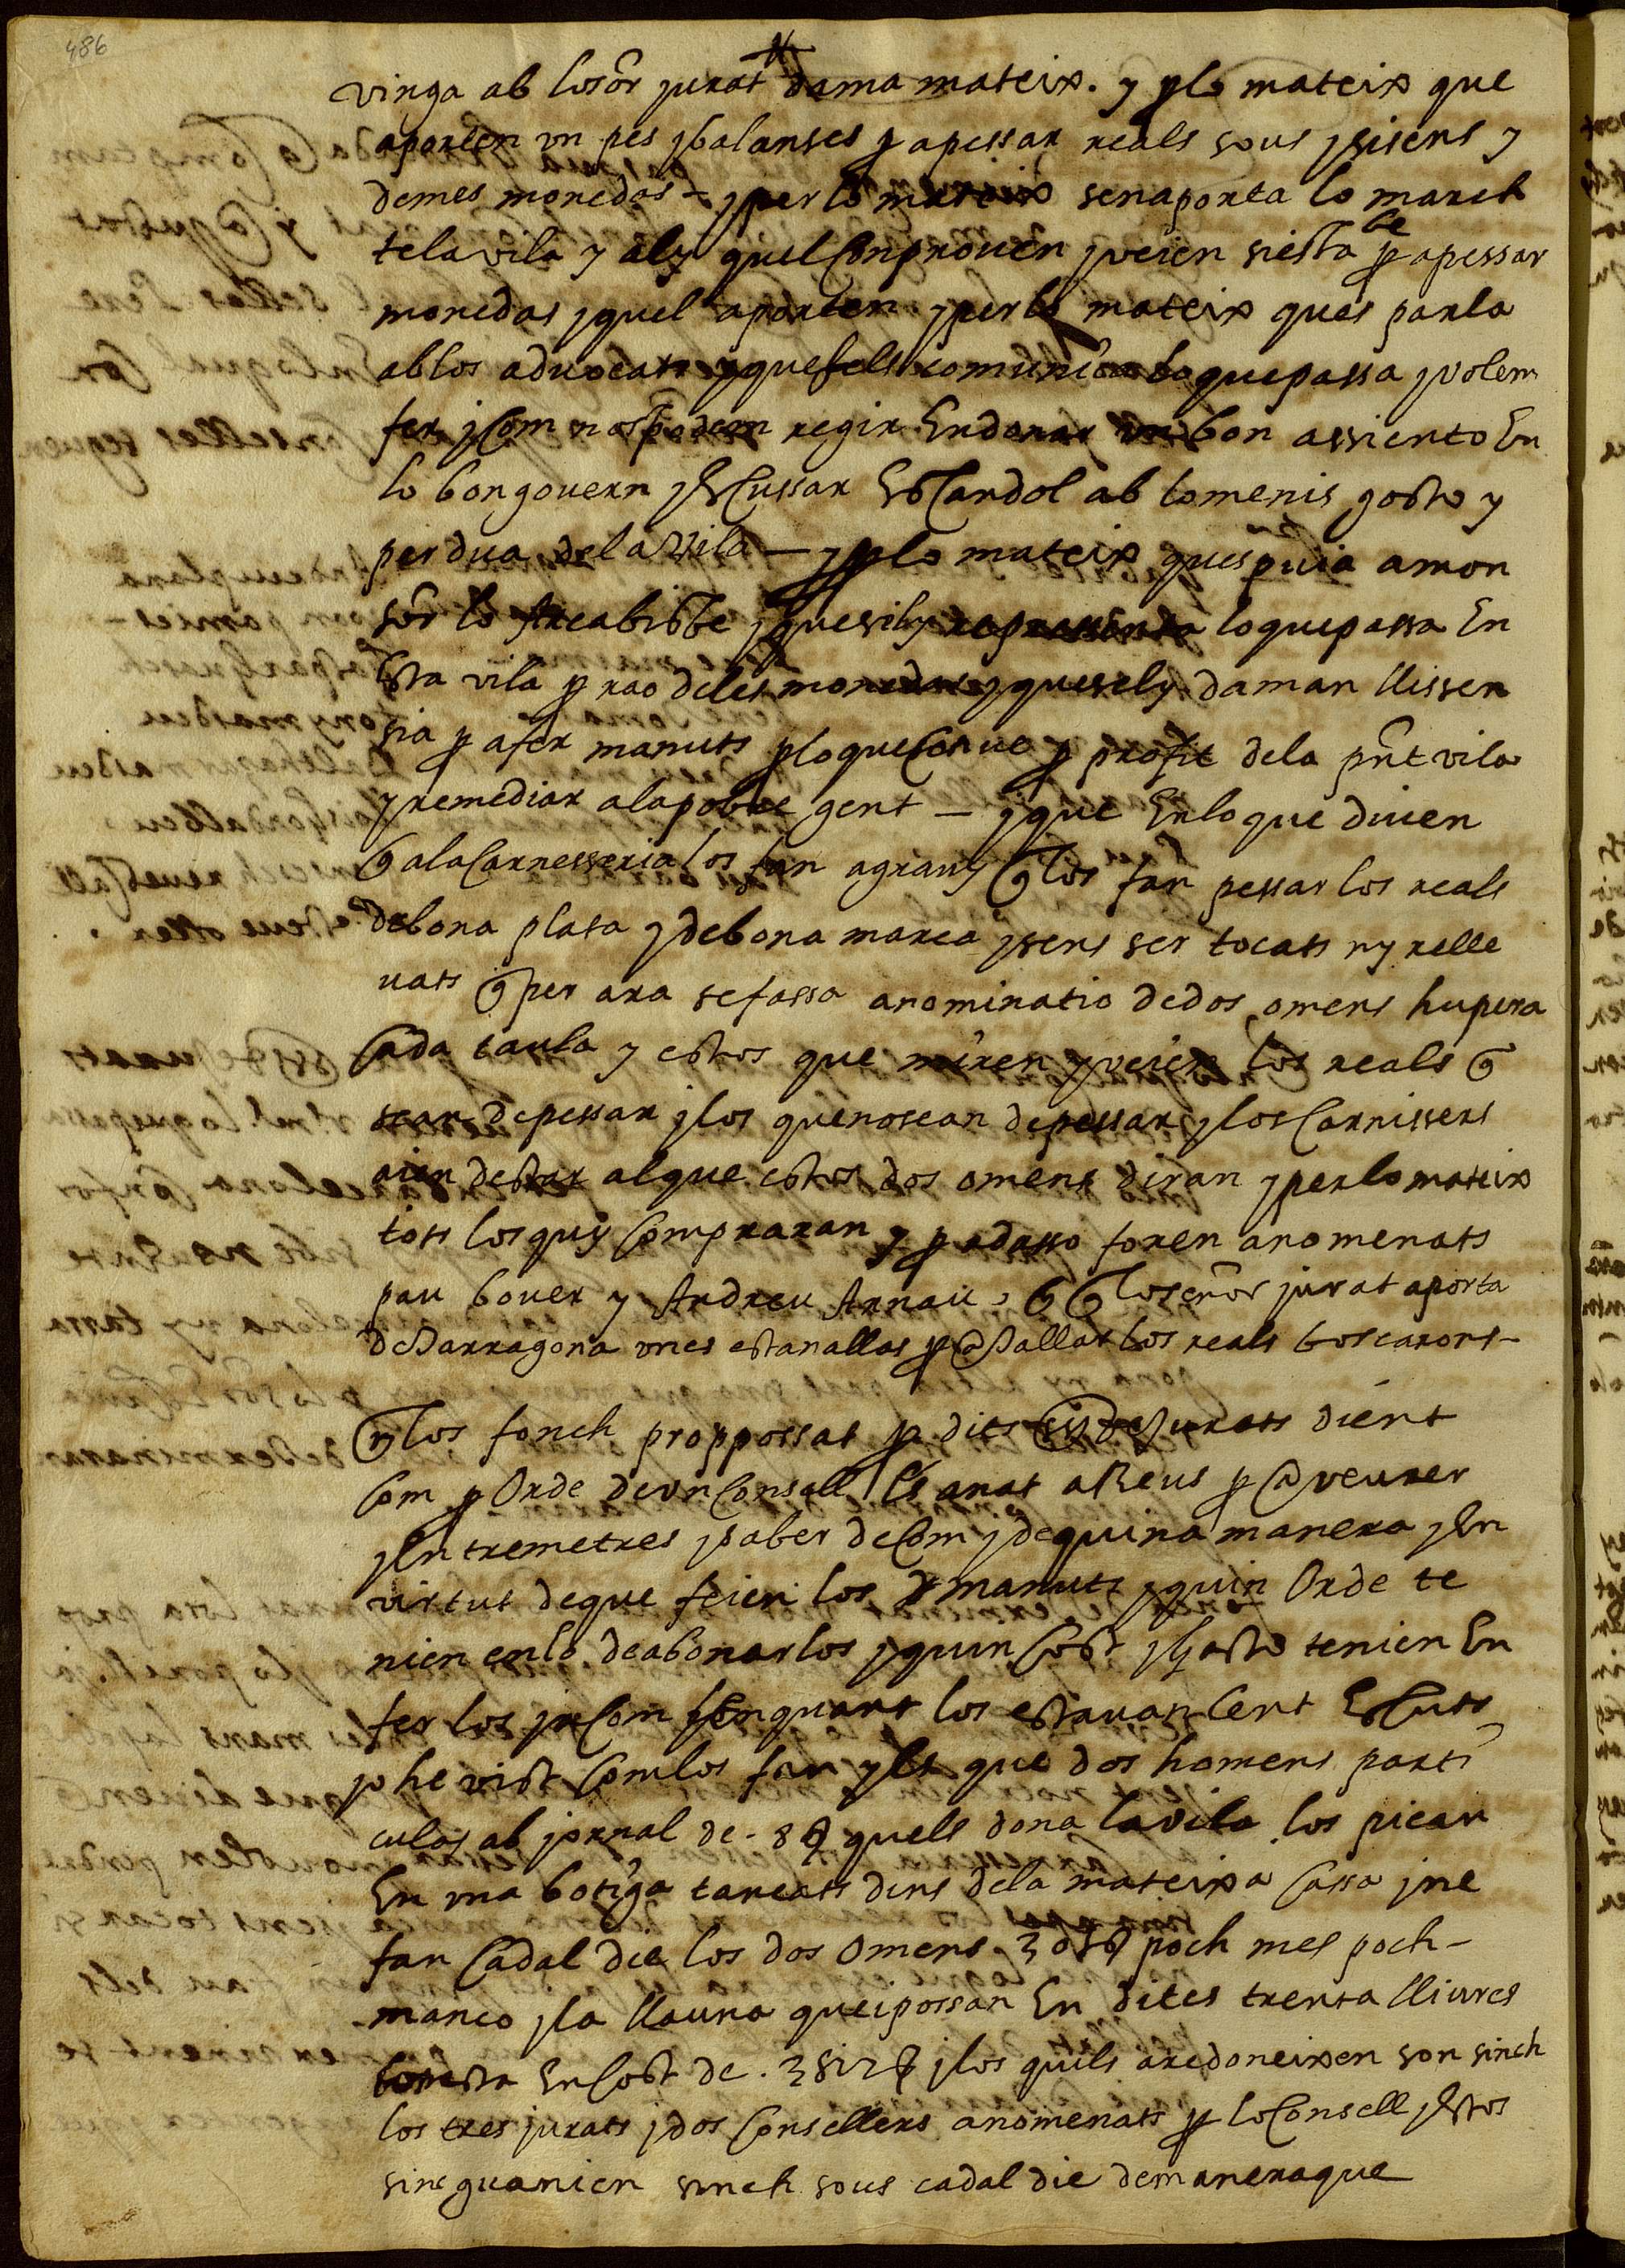 486
vinga ab lo sōr jurat dama mateix. y ꝑ lo mateix que
aporten un pes y balanses ꝑ apessar reals sous y sisens y
demes monedas – y per lo mateix sen aporta lo march
te la vila y aly quel conproven y veien si esta be ꝑ apessar
monedas y quel aporten y per lo mateix ques parla
ab los advocats y que fels comunica lo que passa y volem
fer y com nos podem regir En donar un bon assiento En
lo bon govern y Escussar Escandol ab lo menis gosto y
perdua de la Vila — y ꝑ lo mateix ques puia a mon
sōr lo Arcabisbe y que sily representa lo que passa En
Esta vila ꝑ rao de les monedas y que se ly daman llissen
sia ꝑ a fer manuts ꝑ lo que conve ꝑ profit de la pn̄t vila
y remediar a la pobre gent — y que En lo que diuen
q̄ a la Carnesseria los fan agravy q̄ los fan pessar los reals
de bona plata y de bona marca y sens ser tocats ny relle
vats q̄ per ara se fassa anominatio de dos omens hu pera
Cada taula y estos que miren y veien los reals q̄
sean de pessar y los que no sean de pessar y los Carnissers
aien destar al que estos dos omens diran y per lo mateix
tots los quy Compraran y ꝑ adasso foren anomenats
pau bover y Andreu Arnau , q̄ lo senor jurat aporta
de Tarragona unes estanallas ꝑ a tallar los reals boscarons –
y los fonch proppossat ꝑ dits sōrs de Jurats dient
Com ꝑ Orde de un Consell Es anat a Reus ꝑ a veurer
y Entremetres y saber de Com y de quina manera y En
virtut de que feien los manuts y quin Orde te
nien en lo de abonarlos y quin Cost y gasto tenien En
fer los y Com y En quant los estavan Cent Escuts
jo he vist Com los fan y Es que dos homens parti
culas ab jornal de . 8 quels dona la vila los pican
En una botiga tancats dins de la mateixa Cassa y ne
fan Cadal die los dos Omens 30 poch mes poch –
manco y la llauna quei possan En dites trenta lliures
los esta En Cost de . y los quils aredoneixen son sinch
los tres jurats y dos Consellers anomenats ꝑ lo Consell y Estos
sinc guanien sinch sous cadal die de manera que